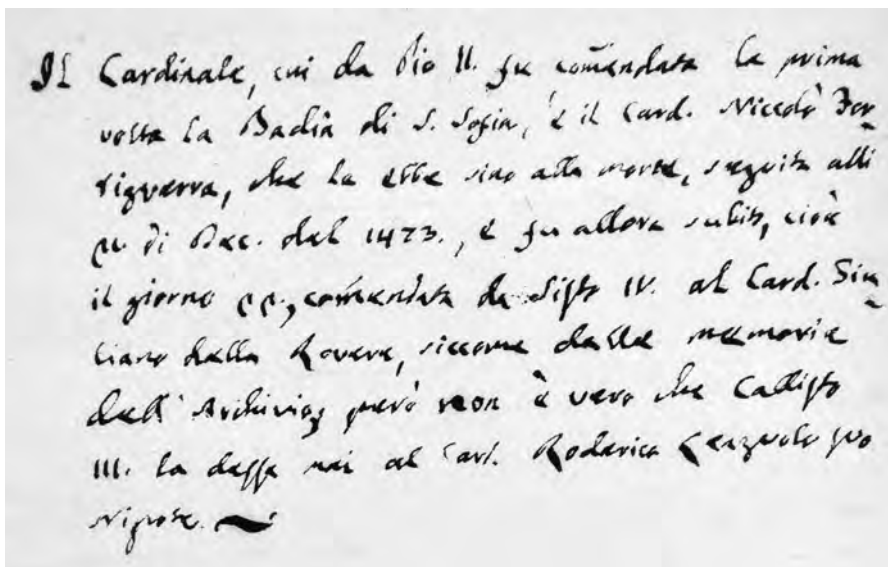 Il Cardinale, cui da Pio II. fu com̃endata la prima
volta la Badia di S. Sofia, è il Card. Niccolò For-
tiguerra, che la ebbe sino alla morte, seguita alli
21 di Dec. del 1473., e fu allora subito, cioè
il giorno 22., com̃endata da Sisto IV. al Card. Giu-
liano della Rovere, siccome dalle memorie
dell'Archivio; però non è vero che Callisto
III. la desse mai al Card. Roderico Lenzuolo suo
Nipote.